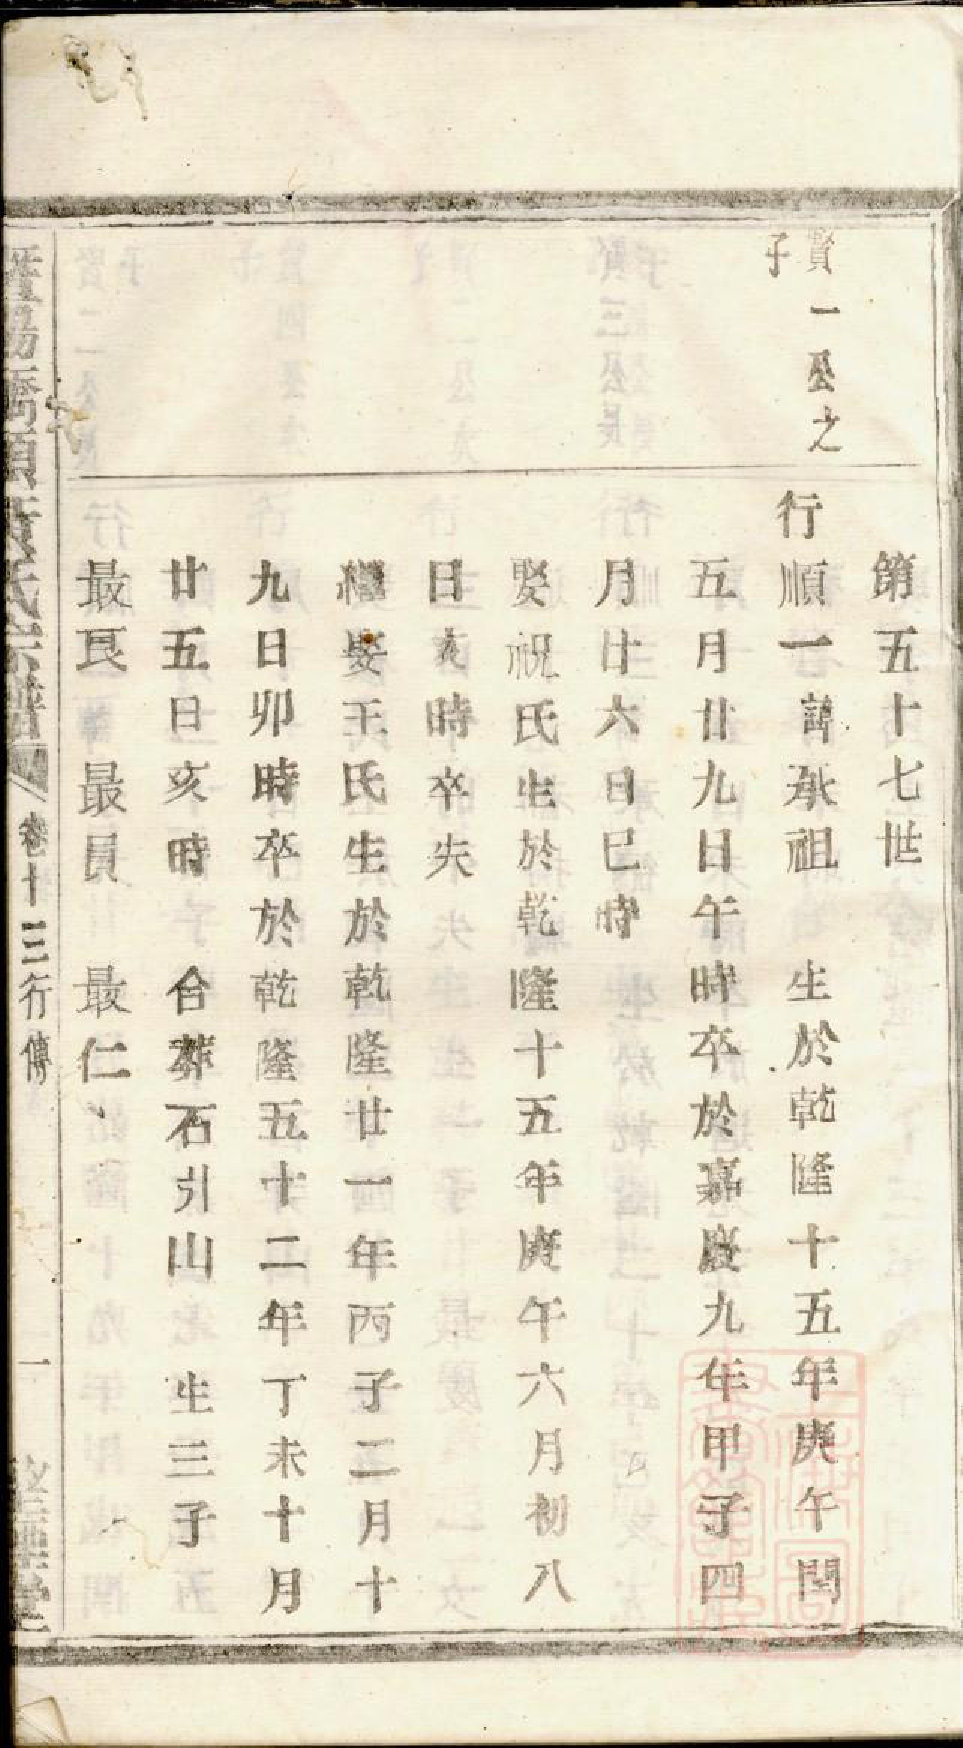 第五十七世
賢一公之
子
行順一諱承祖 生於乾隆十五年庚午閏
五月廿九日午時卒於嘉慶九年甲子四
月廿六日巳時
娶祝氏生於乾隆十五年庚午六月初八
日亥時卒失
繼娶王氏生於乾隆廿一年丙子二月十
九日卯時卒於乾隆五十二年丁未十月
廿五日亥時 合葬石引山 生三子
最良 最員 最仁
卷十三行傳 一